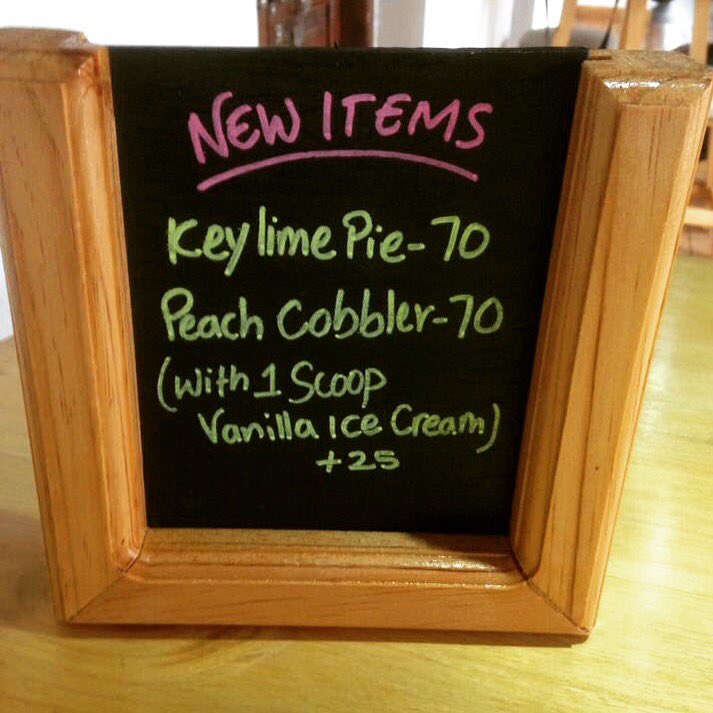 NEW ITEMS
Key lime Pie - 70
Peach Cobbler - 70
(with 1 Scoop
Vanilla Ice Cream)
+25